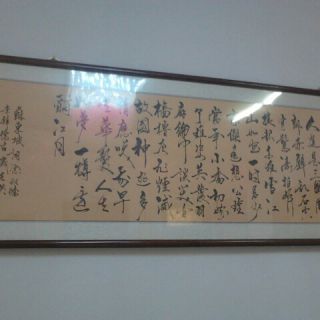 人道是三國周
郎赤壁亂石
驚濤拍岸
捲起千堆雪江
山如畫一時多少
豪傑遙想公瑾
當年小喬初嫁
了雄姿英發羽
扇綸巾談笑間
檣櫓灰飛煙滅
故國神遊多
情應笑我早
生華髮人生
如夢一樽還
酹江月
蘇東坡